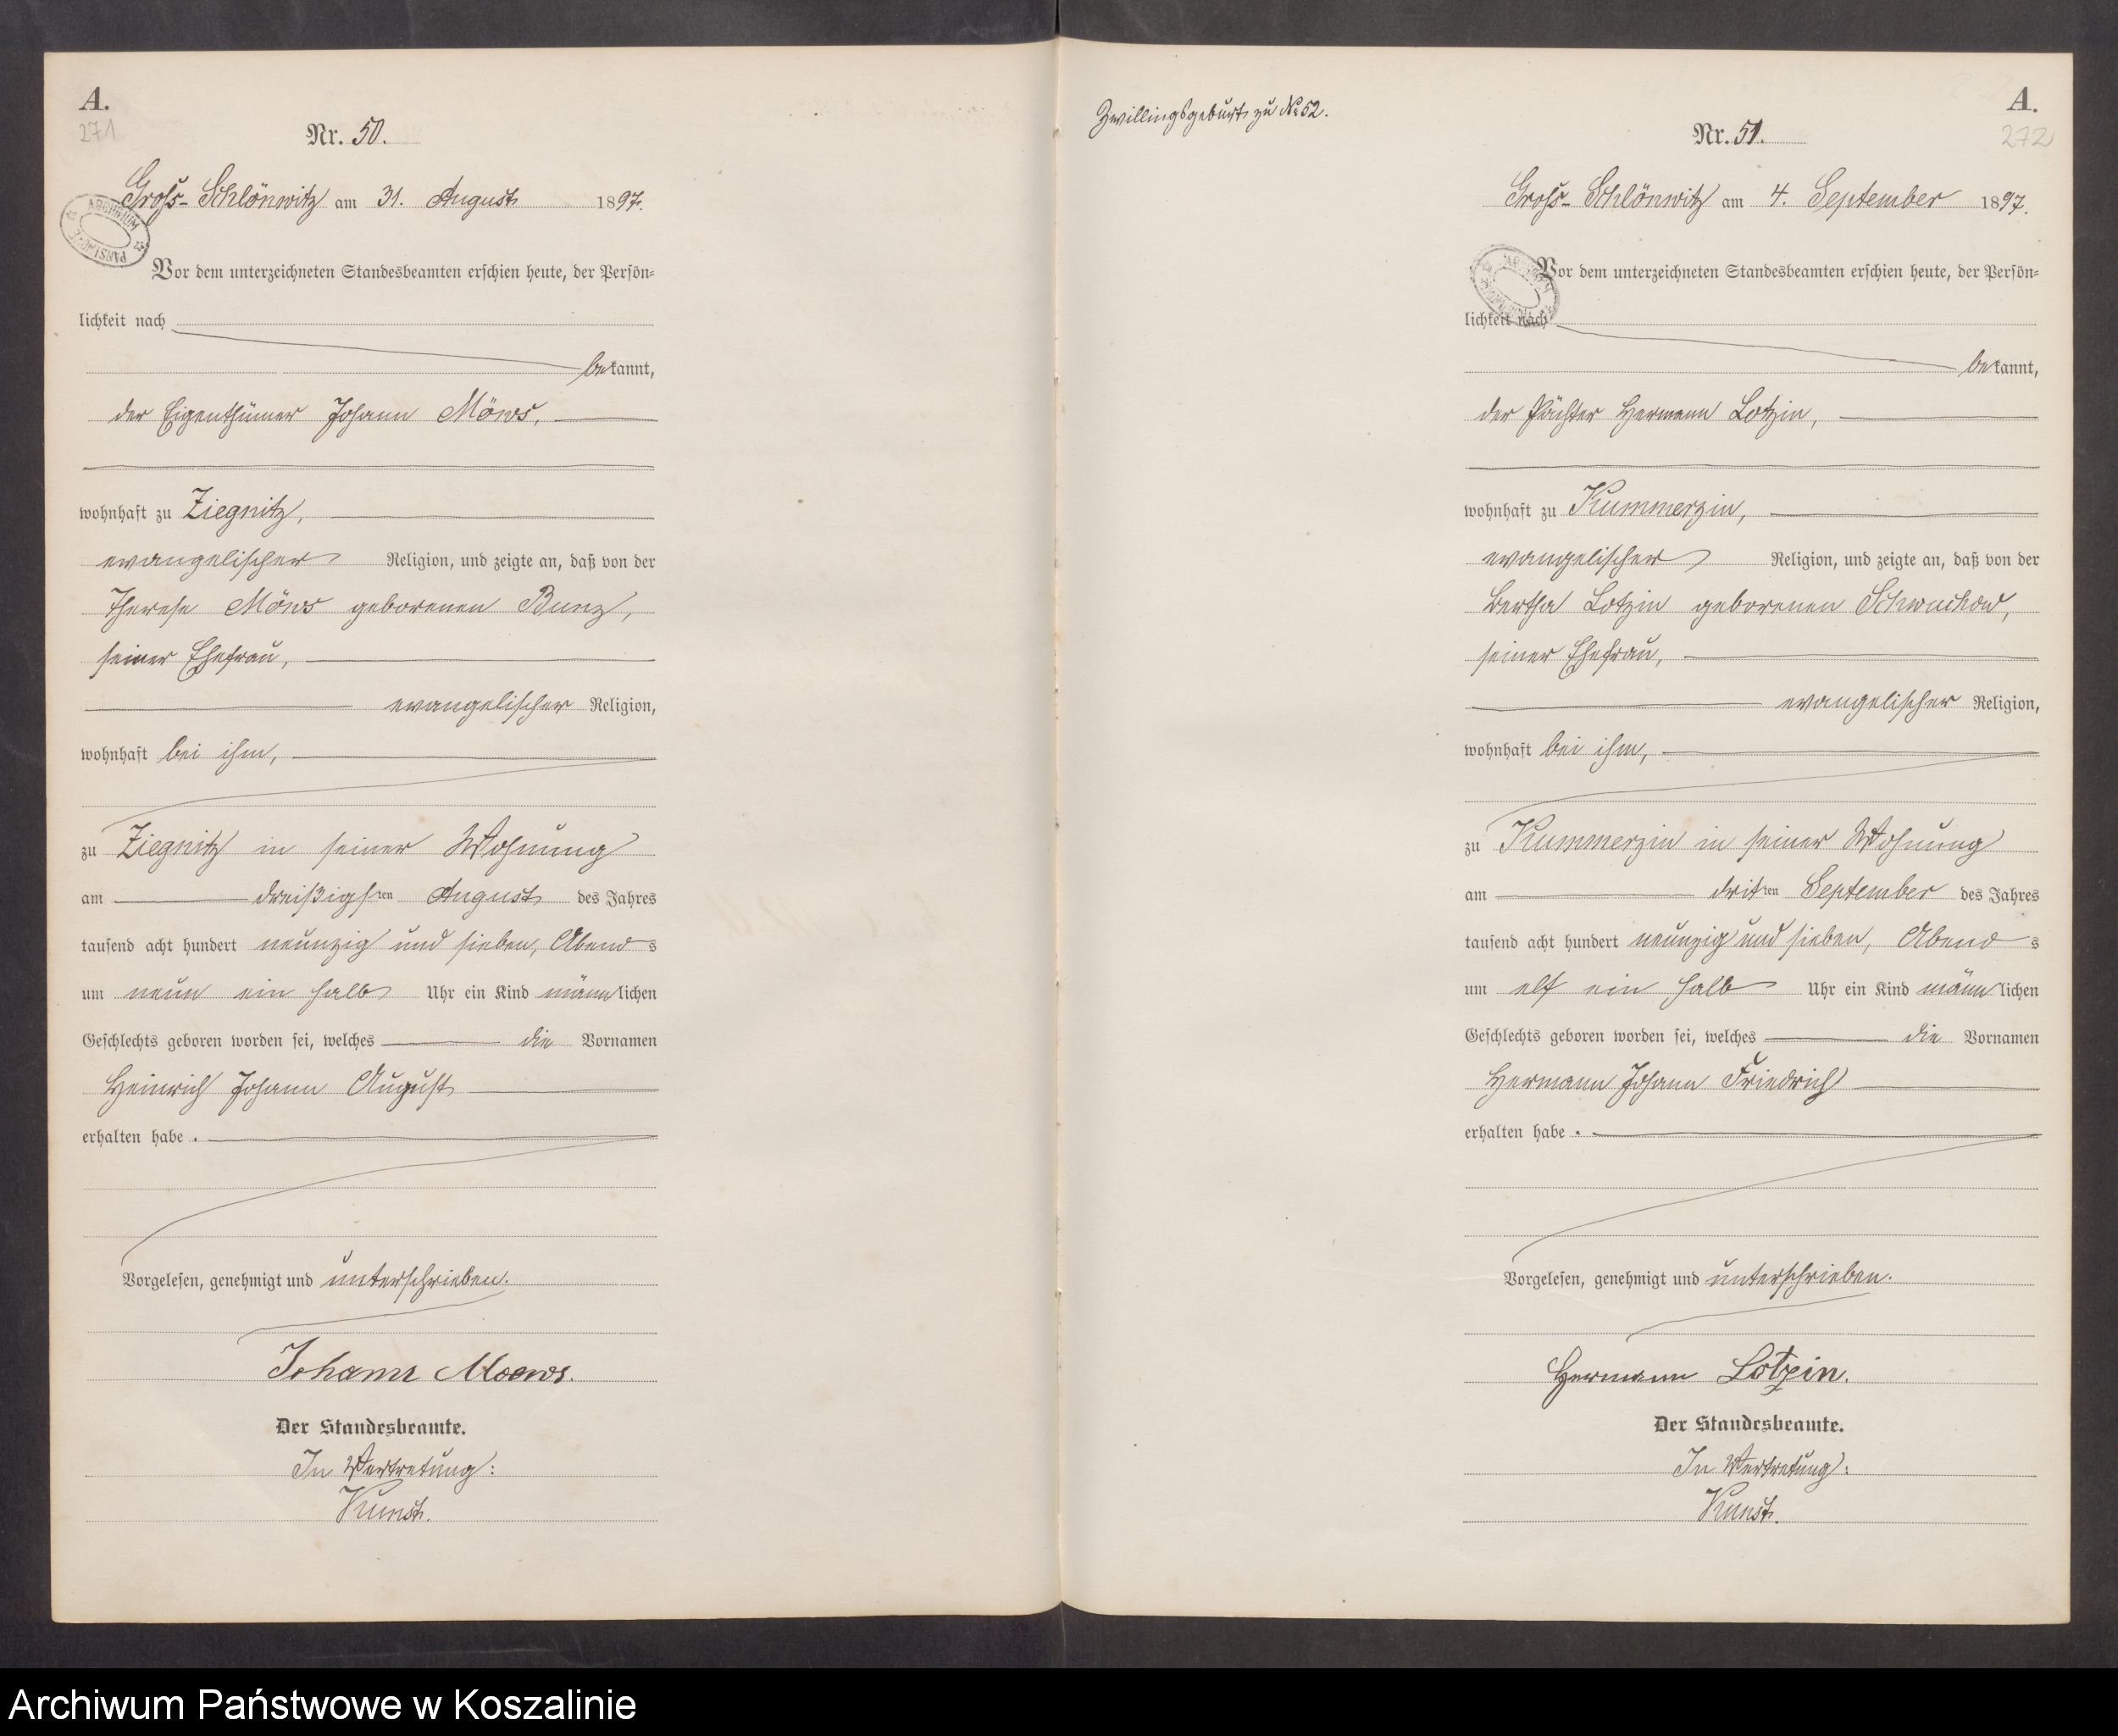 A.
271
Nr. 50.
Groß-Schlönwitz am 31. August 1897.
Vor dem unterzeichneten Standesbeamten erschien heute, der Persön=
lichkeit nach
bekannt,
der Eigenthümer Johann Möws,
wohnhaft zu Ziegnitz,
evangelischer Religion, und zeigte an, daß von der
Therese Möws geborenen Bunz,
seiner Ehefrau,
evangelischer Religion,
wohnhaft bei ihm,
zu Ziegnitz in seiner Wohnung
am dreißigsten August des Jahres
tausend acht hundert neunzig und sieben, Abends
um neun ein halb Uhr ein Kind männlichen
Geschlechts geboren worden sei, welches die Vornamen
Heinrich Johann August
erhalten habe.
Vorgelesen, genehmigt und unterschrieben.
Johann Moews.
Der Standesbeamte.
In Vertretung:
Kunst.
Zwillingsgeburt zu No 52.
A.
272
Nr. 51.
Groß-Schlönwitz am 4. September 1897.
Vor dem unterzeichneten Standesbeamten erschien heute, der Persön=
lichkeit nach
bekannt,
der Pächter Hermann Lotzin,
wohnhaft zu Kummerzin,
evangelischer Religion, und zeigte an, daß von der
Bertha Lotzin geborenen Schwuchow,
seiner Ehefrau,
evangelischer Religion,
wohnhaft bei ihm,
zu Kummerzin in seiner Wohnung
am dritten September des Jahres
tausend acht hundert neunzig und sieben, Abends
um elf ein halb Uhr ein Kind männlichen
Geschlechts geboren worden sei, welches die Vornamen
Hermann Johann Friedrich
erhalten habe.
Vorgelesen, genehmigt und unterschrieben.
Hermann Lotzin.
Der Standesbeamte.
In Vertretung:
Kunst.
Archiwum Państwowe w Koszalinie